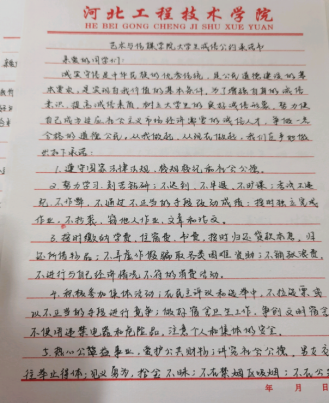 河北工程技术学院
HE BEI GONG CHENG JI SHU XUE YUAN
艺术与传媒学院大学生诚信公约承诺书
亲爱的同学们：
诚实守信是中华民族的优秀传统，是公民道德建设的基
本要求，是实现自我价值的基本条件，为了增强自身的诚信
意识，提高诚信素质，树立大学生的良好诚信形象，努力使
自己成为适应社会主义市场经济需要的诚信人才，争做一名
合格的道德公民，从我做起，从现在做起，我们应
如下承诺：
1.遵守国家法律法规，校规校纪和社会公德。
2.努力学习，刻苦钻研；不迟到，不早退，不旷课；考试不违
纪，不作弊，不通过不正当的手段改动成绩；按时独立完成
作业，不抄袭，窃他人作业，文章和论文。
3.按时缴纳学费，住宿费，书费，按时归还贷款本息，归
还所借物品；不弄虚作假骗取各类困难资助；不拖欠话费，
不进行与自己经济情况不符的消费活动。
4.积极参加集体活动；在民主评议和选举中，不拉选票，
以不正当的手段进行竞争；做好宿舍卫生工作，争创文明宿舍
不使用违禁电器和危险品，注意个人和集体的安全。
5.热心公益事业，爱护公共财物；讲究社会公德，男女交
往举止得体；见义勇为，拾金不昧；不在禁烟区吸烟；不在公
年 月 日